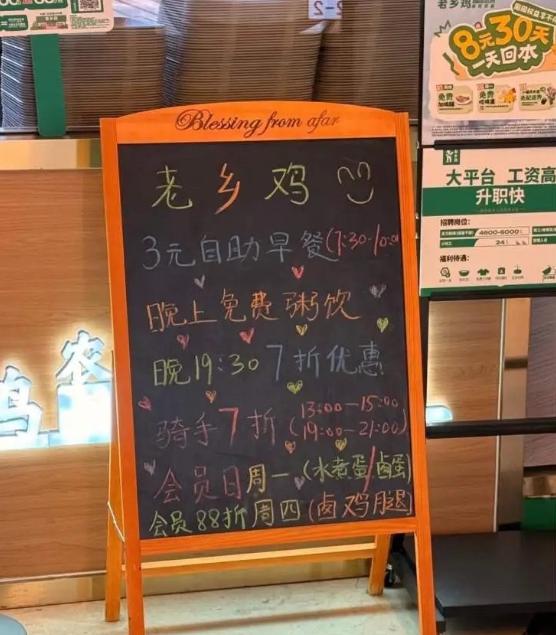 Blessing from afar
老乡鸡
3元自助早餐(7:30-10:00
晚上免费粥饮
晚19:30 7折优惠
骑手7折(13:00—15:00
19:00—21:00)
会员日周一(水煮蛋/卤蛋)
会员88折周四(卤鸡腿)
老乡鸡
8元30天
一天回本
免费
免费
大平台 工资高
升职快
招聘岗位:
4600-6000
福利待遇:
鸡 农